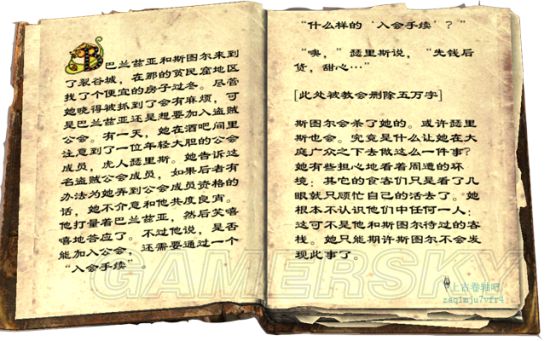 巴兰兹亚和斯图尔来到
了裂谷城，在那的贫民窟地区
找了个便宜的房子过冬。尽管
她晓得被抓到了会有麻烦，可
是巴兰兹亚还是想要加入盗贼
公会。有一天，她在酒吧间里
注意到了一位年轻大胆的公会
成员，虎人瑟里斯。她告诉这
名盗贼公会成员，如果后者有
办法为她弄到公会成员资格的
话，她不介意和他共度良宵。
他打量着巴兰兹亚，然后笑嘻
嘻地答应了。不过他说，是否
能加入公会，还需要通过一个
“入会手续”。
“什么样的‘入会手续’？”
“噢，”瑟里斯说，“先钱后
货，甜心…”
[此处被教会删除五万字]
斯图尔会杀了她的。或许瑟里
斯也会。究竟是什么让她在大
庭广众之下去做这么一件事？
她有些担心地看着周遭的环
境：其它的食客们只是看了几
眼就只顾忙自己的活去了。她
根本不认识他们中任何一人；
这可不是他和斯图尔待过的客
栈。她只能期许斯图尔不会发
现此事了。
GAMERSKY
上古卷轴吧
zaqimju7vfr4